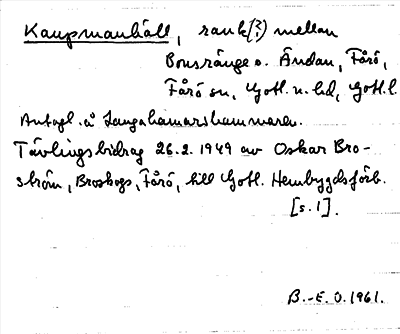 Kaupmanhäll, rauk(?) mellan
Bonsränge o. Ändan, Fårö,
Fårö sn, Gotl. n. hd, Gotl. l.
Antagl. å Langhammarshammaren.
Tävlingsbidrag 26.2.1949 av Oskar Bro-
ström, Broskogs, Fårö, till Gotl. Hembygdsförb.
[s. 1].
B.-E. O. 1961.